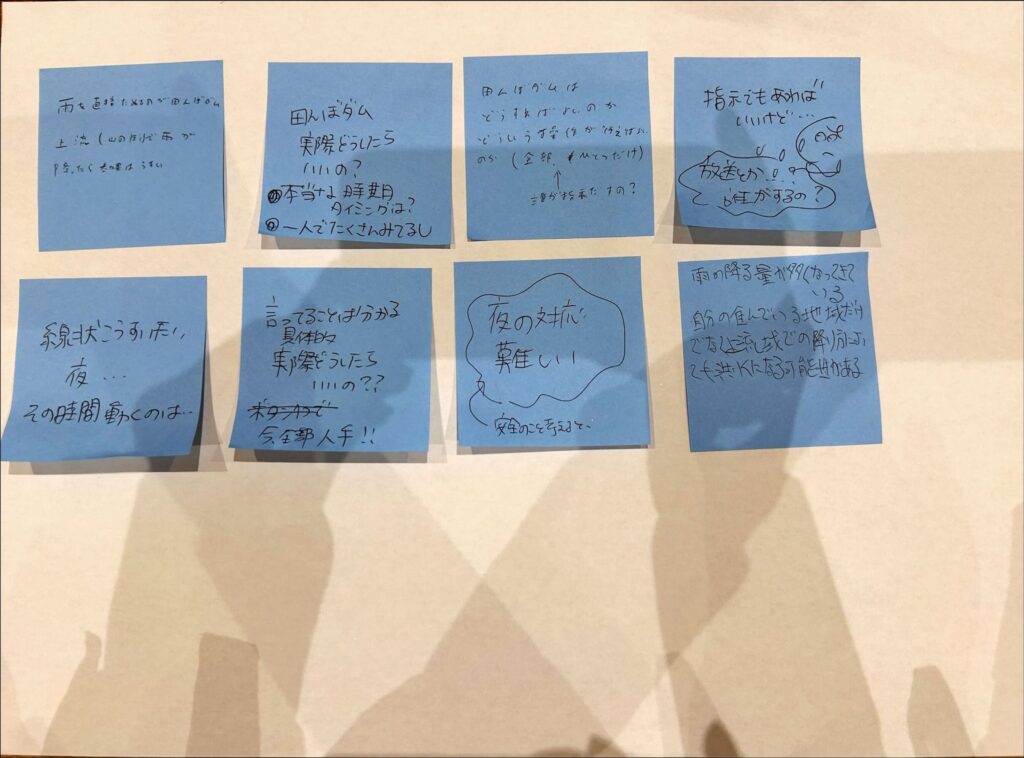 雨を直接ためるのが田んぼダム
上流(山のほうで雨が
降ったら効果はうすい
田んぼダム
実際どうしたら
いいの?
本当な時期
タイミングは?
一人でたくさんみてるし
田んぼダムは
どうすればよいのか
どういう操作が行えばよい
のか(全部、ひとつだけ)
↑
誰が指示だすの?
指示でもあれば
いいけど…
放送とか!!
誰がするの?
線状こうすい帯
夜…
その時間動くのは…
言ってることは分かる
具体的
実際どうしたら
いいの??
今全部人手!!
夜の対応
難しい
安全のこと考えると…
雨の降る量が多くなってきて
いる
自分の住んでいる地域だけ
でなく上流域での降雨によっ
ても洪水になる可能性がある